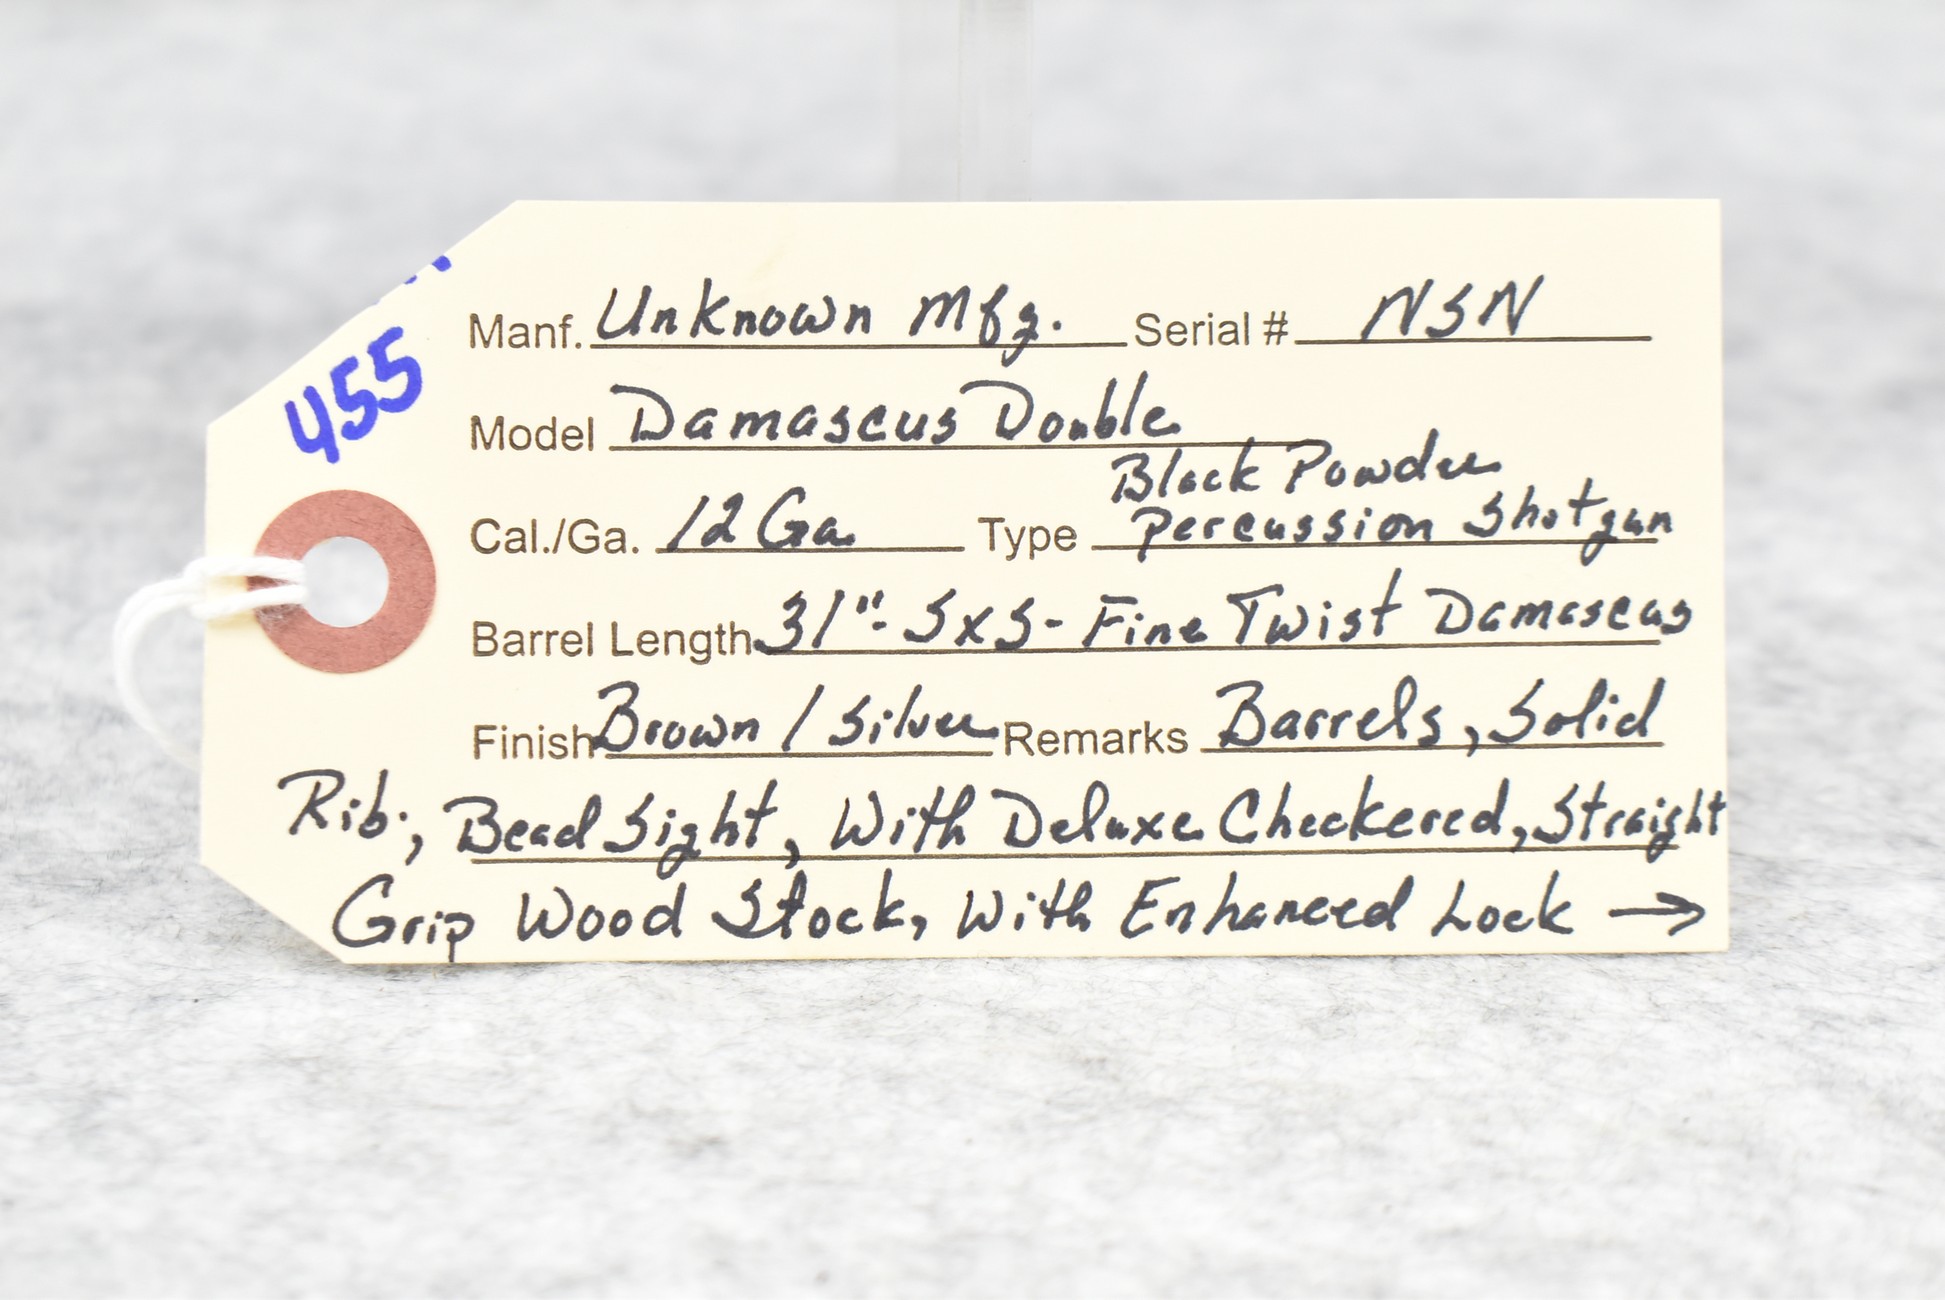 455
Manf. Unknown Mfg. Serial # NSN
Model Damascus Double
Cal./Ga. 12 Ga. Type Black Powder
Percussion Shotgun
Barrel Length 31"- SxS- Fine Twist Damascus
Finish Brown / Silver Remarks Barrels, Solid
Rib., Bead Sight, With Deluxe Checkered, Straight
Grip Wood Stock, With Enhanced Lock →